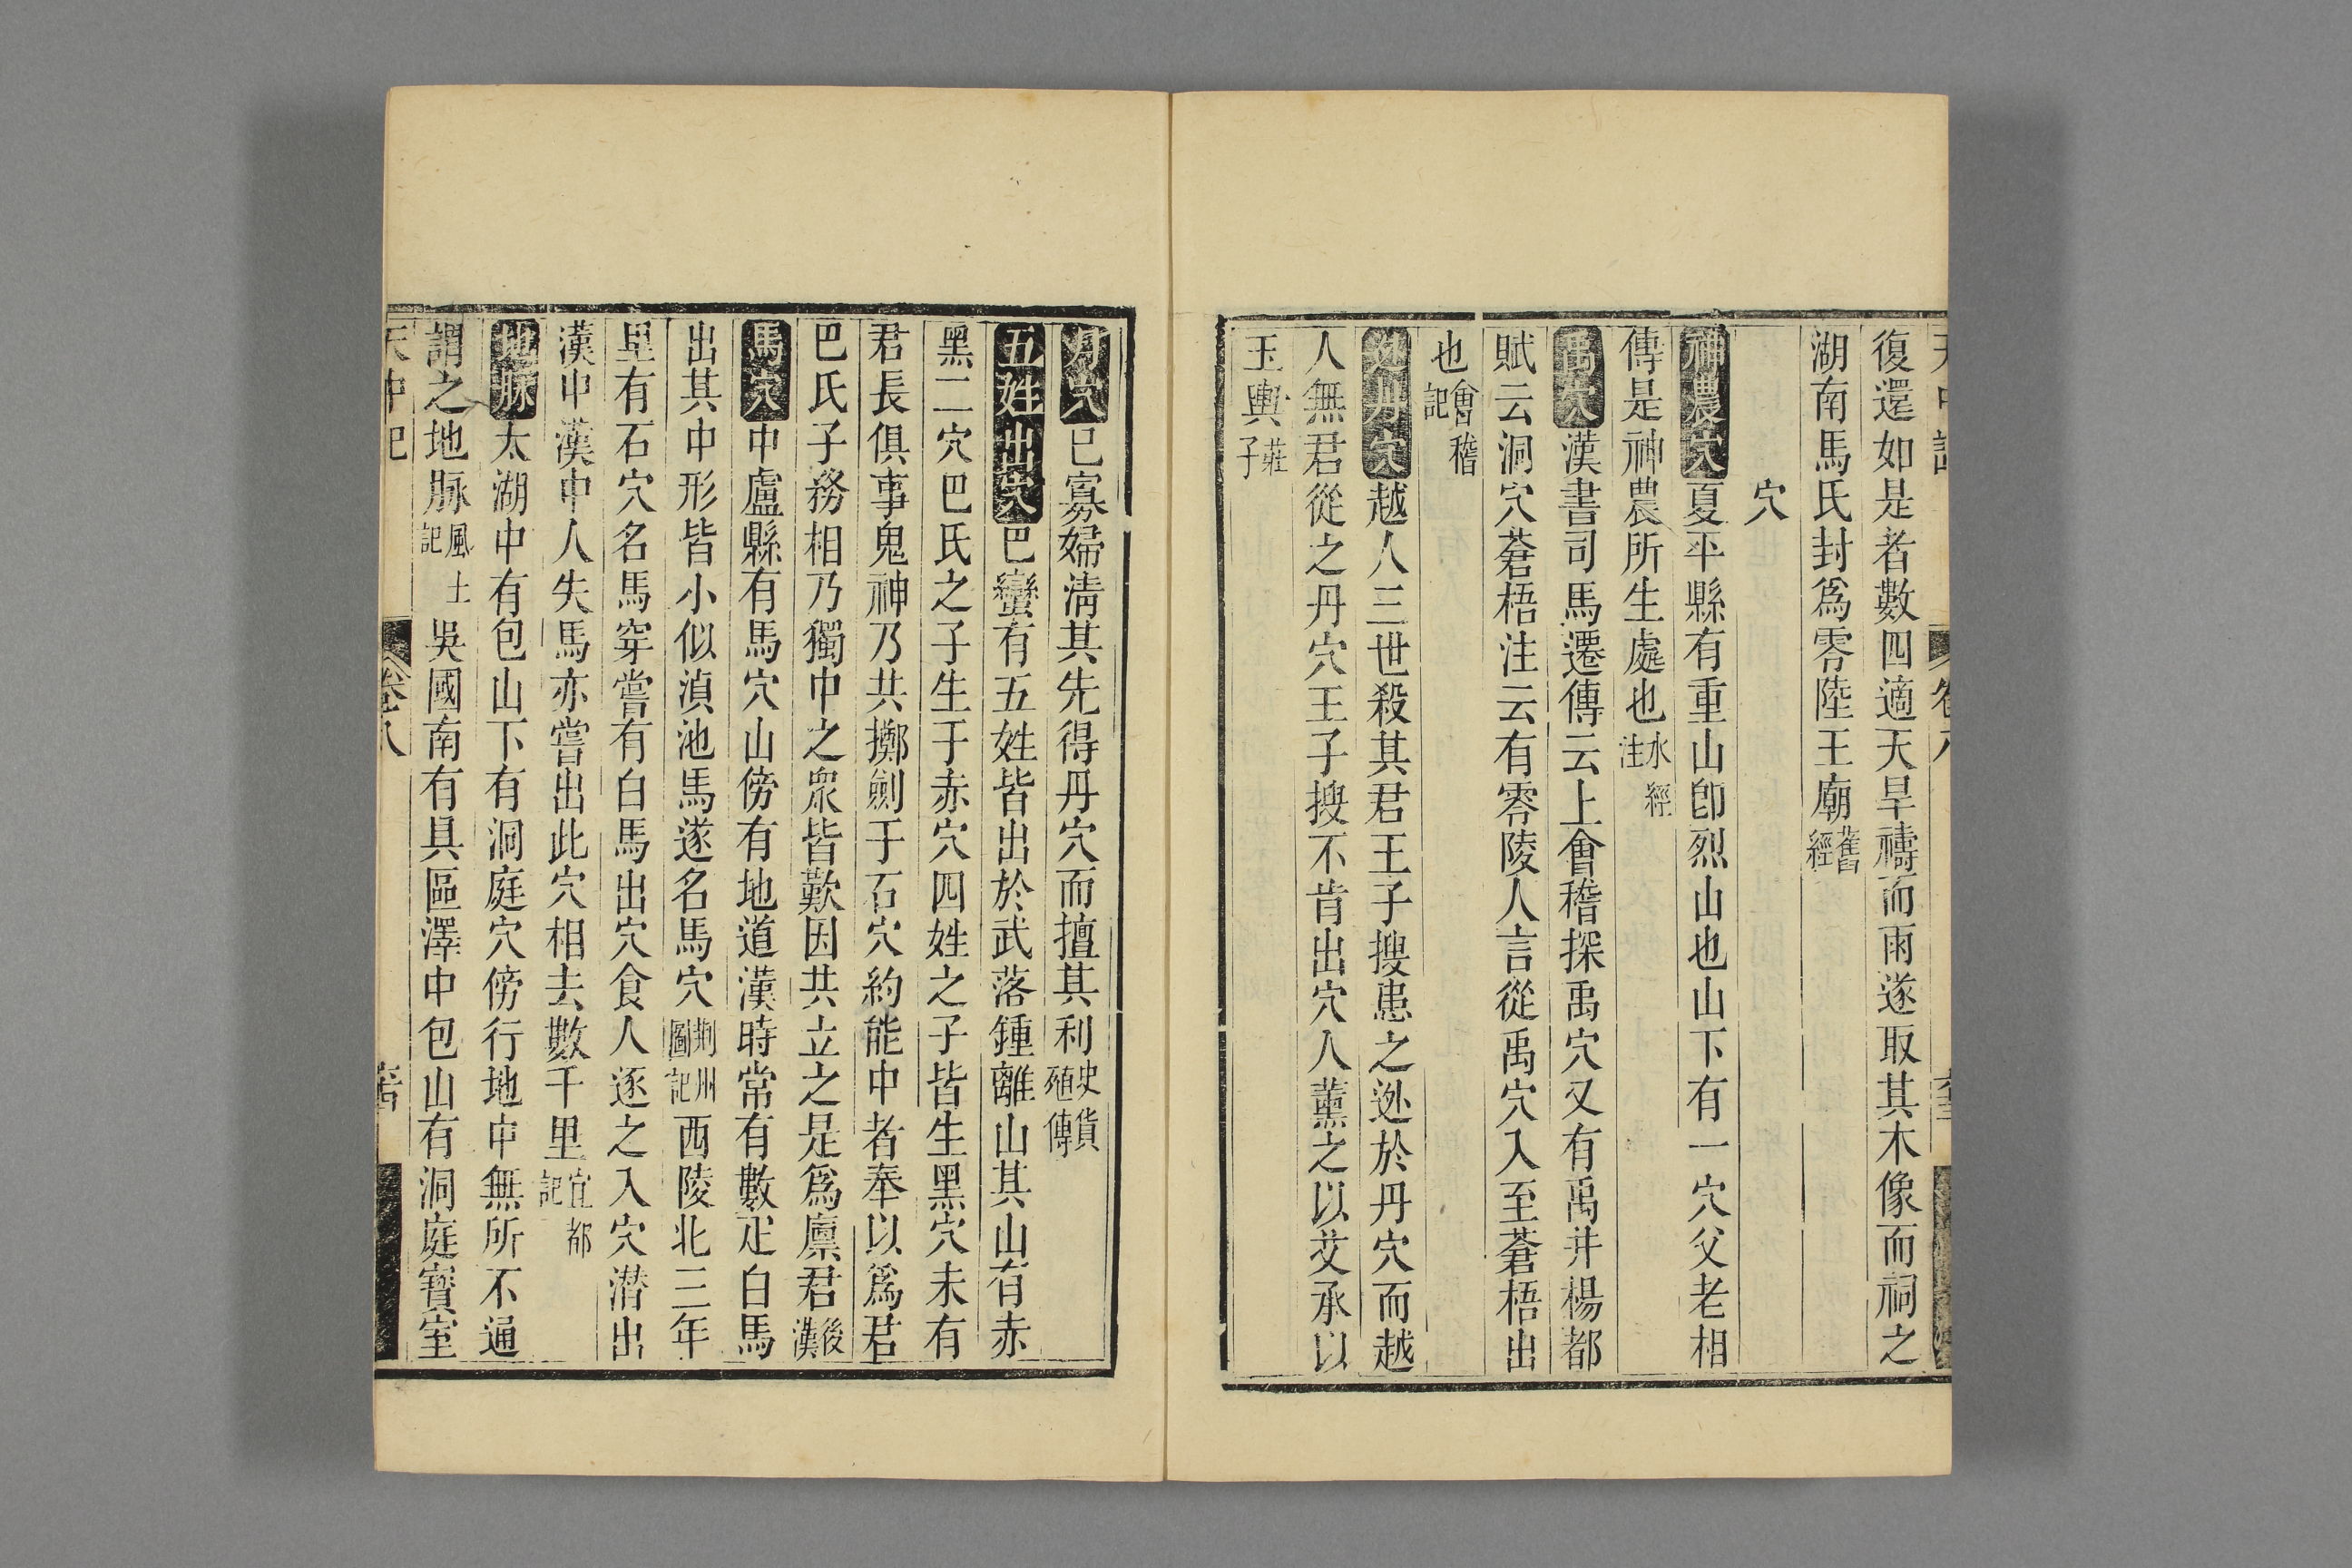 復還如是者數四適天旱禱而雨遂取其木像而祠之
湖南馬氏封爲零陸王廟舊經
穴
神農穴夏平縣有重山卽烈山也山下有一穴父老相
傳是神農所生處也水經注
禹穴漢書司馬遷傳云上會稽探禹穴又有禹井楊都
賦云洞穴蒼梧注云有零陵人言從禹穴入至蒼梧出
也會稽記
逃丹穴越人三世殺其君王子搜患之逃於丹穴而越
人無君從之丹穴王子搜不肯出穴人薰之以艾承以
玉輿莊子
丹穴巴寡婦清其先得丹穴而擅其利史貨殖傳
五姓出穴巴蠻有五姓皆出於武落鍾離山其山有赤
黑二穴巴氏之子生于赤穴四姓之子皆生黑穴未有
君長俱事鬼神乃共擲劍于石穴約能中者奉以爲君
巴氏子務相乃獨中之衆皆歎因共立之是爲廩君後漢
馬穴中盧縣有馬穴山傍有地道漢時常有數疋白馬
出其中形皆小似滇池馬遂名馬穴荆州圖記西陵北三年
里有石穴名馬穿嘗有白馬出穴食人逐之入穴潛出
漢中漢中人失馬亦嘗出此穴相去數千里宜都記
地脉太湖中有包山下有洞庭穴傍行地中無所不通
謂之地脉風土記吳國南有具區澤中包山有洞庭寶室
天中記 卷八